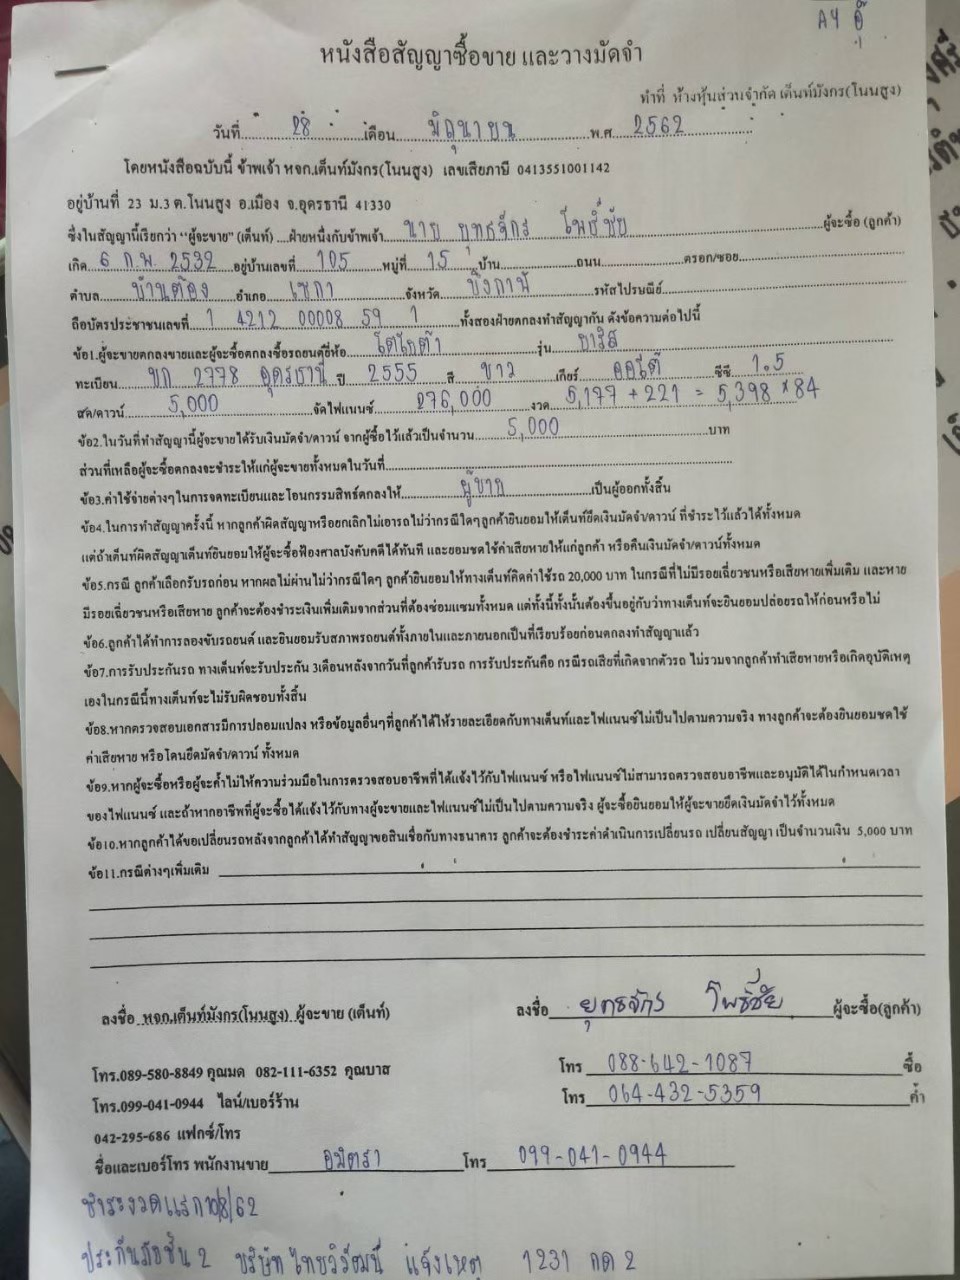 AY อู๊
หนังสือสัญญาซื้อขาย และวางมัดจำ
ทำที่ ห้างหุ้นส่วนจำกัด เต็นท์มังกร(โนนสูง)
วันที่ 28 เดือน มิถุนายน พ.ศ 2562
โดยหนังสือฉบับนี้ ข้าพเจ้า หจก.เต็นท์มังกร(โนนสูง) เลขเสียภาษี 0413551001142
อยู่บ้านที่ 23 ม.3 ต.โนนสูง อ.เมือง จ.อุดรธานี 41330
ซึ่งในสัญญานี้เรียกว่า "ผู้จะขาย" (เต็นท์) ....ฝ่ายหนึ่งกับข้าพเจ้า นาย ยุทธจักร โพธิ์ชัย ผู้จะซื้อ (ลูกค้า)
เกิด 6 ก.พ. 2532 อยู่บ้านเลขที่ 105 หมู่ที่ 15 บ้าน ถนน ตรอก/ซอย
ตำบล บ้านต้อง อำเภอ เซกา จังหวัด บึงกาฬ รหัสไปรษณีย์
ถือบัตรประชาชนเลขที่ 1 4212 00008 59 1 ทั้งสองฝ่ายตกลงทำสัญญากัน ดังข้อความต่อไปนี้
ข้อ1.ผู้จะขายตกลงขายและผู้จะซื้อตกลงซื้อรถยนต์ยี่ห้อ โตโยต้า รุ่น ยาริส
ทะเบียน ขก 2778 อุดรธานี ปี 2555 สี ขาว เกียร์ ออโต้ ซีซี 1.5
สด/ดาวน์ 5,000 จัดไฟแนนซ์ 276,000 งวด 5,177 + 221 = 5,398 × 84
ข้อ2.ในวันที่ทำสัญญานี้ผู้จะขายได้รับเงินมัดจำ/ดาวน์ จากผู้ซื้อไว้แล้วเป็นจำนวน 5,000 บาท
ส่วนที่เหลือผู้จะซื้อตกลงจะชำระให้แก่ผู้จะขายทั้งหมดในวันที่
ข้อ3.ค่าใช้จ่ายต่างๆในการจดทะเบียนและโอนกรรมสิทธ์ตกลงให้ ผู้ขาย เป็นผู้ออกทั้งสิ้น
ข้อ4.ในการทำสัญญาครั้งนี้ หากลูกค้าผิดสัญญาหรือยกเลิกไม่เอารถไม่ว่ากรณีใดๆลูกค้ายินยอมให้เต็นท์ยึดเงินมัดจำ/ดาวน์ ที่ชำระไว้แล้วได้ทั้งหมด
แต่ถ้าเต็นท์ผิดสัญญาเต็นท์ยินยอมให้ผู้จะซื้อฟ้องศาลบังคับคดีได้ทันที และยอมชดใช้ค่าเสียหายให้แก่ลูกค้า หรือคืนเงินมัดจำ/ดาวน์ทั้งหมด
ข้อ5.กรณี ลูกค้าเลือกรับรถก่อน หากผลไม่ผ่านไม่ว่ากรณีใดๆ ลูกค้ายินยอมให้ทางเต็นท์คิดค่าใช้รถ 20,000 บาท ในกรณีที่ไม่มีรอยเฉี่ยวชนหรือเสียหายเพิ่มเติม และหาย
มีรอยเฉี่ยวชนหรือเสียหาย ลูกค้าจะต้องชำระเงินเพิ่มเติมจากส่วนที่ต้องซ่อมแซมทั้งหมด แต่ทั้งนี้ทั้งนั้นต้องขึ้นอยู่กับว่าทางเต็นท์จะยินยอมปล่อยรถให้ก่อนหรือไม่
ข้อ6.ลูกค้าได้ทำการลองขับรถยนต์ และยินยอมรับสภาพรถยนต์ทั้งภายในและภายนอกเป็นที่เรียบร้อยก่อนตกลงทำสัญญาแล้ว
ข้อ7.การรับประกันรถ ทางเต็นท์จะรับประกัน 3เดือนหลังจากวันที่ลูกค้ารับรถ การรับประกันคือ กรณีรถเสียที่เกิดจากตัวรถ ไม่รวมจากลูกค้าทำเสียหายหรือเกิดอุบัติเหตุ
เองในกรณีนี้ทางเต็นท์จะไม่รับผิดชอบทั้งสิ้น
ข้อ8.หากตรวจสอบเอกสารมีการปลอมแปลง หรือข้อมูลอื่นๆที่ลูกค้าได้ให้รายละเอียดกับทางเต็นท์และไฟแนนซ์ไม่เป็นไปตามความจริง ทางลูกค้าจะต้องยินยอมชดใช้
ค่าเสียหาย หรือโดนยึดมัดจำ/ดาวน์ ทั้งหมด
ข้อ9.หากผู้จะซื้อหรือผู้จะค้ำไม่ให้ความร่วมมือในการตรวจสอบอาชีพที่ได้แจ้งไว้กับไฟแนนซ์ หรือไฟแนนซ์ไม่สามารถตรวจสอบอาชีพและอนุมัติได้ในกำหนดเวลา
ของไฟแนนซ์ และถ้าหากอาชีพที่ผู้จะซื้อได้แจ้งไว้กับทางผู้จะขายและไฟแนนซ์ไม่เป็นไปตามความจริง ผู้จะซื้อยินยอมให้ผู้จะขายยึดเงินมัดจำไว้ทั้งหมด
ข้อ10.หากลูกค้าได้ขอเปลี่ยนรถหลังจากลูกค้าได้ทำสัญญาขอสินเชื่อกับทางธนาคาร ลูกค้าจะต้องชำระค่าดำเนินการเปลี่ยนรถ เปลี่ยนสัญญา เป็นจำนวนเงิน 5,000 บาท
ข้อ11.กรณีต่างๆเพิ่มเติม
ลงชื่อ หจก.เต็นท์มังกร(โนนสูง) ผู้จะขาย (เต็นท์) ลงชื่อ ยุทธจักร โพธิ์ชัย ผู้จะซื้อ(ลูกค้า)
โทร.089-580-8849 คุณมด 082-111-6352 คุณบาส โทร 088-642-1087 ซื้อ
โทร.099-041-0944 ไลน์/เบอร์ร้าน โทร 064-432-5359 ค้ำ
042-295-686 แฟกซ์/โทร
ชื่อและเบอร์โทร พนักงานขาย อมิตรา โทร 099-041-0944
ชำระงวดแรก 10/8/62
ประกันภัยชั้น 2 บริษัท ไทยวิวัฒน์ แจ้งเหตุ 1231 กด 2